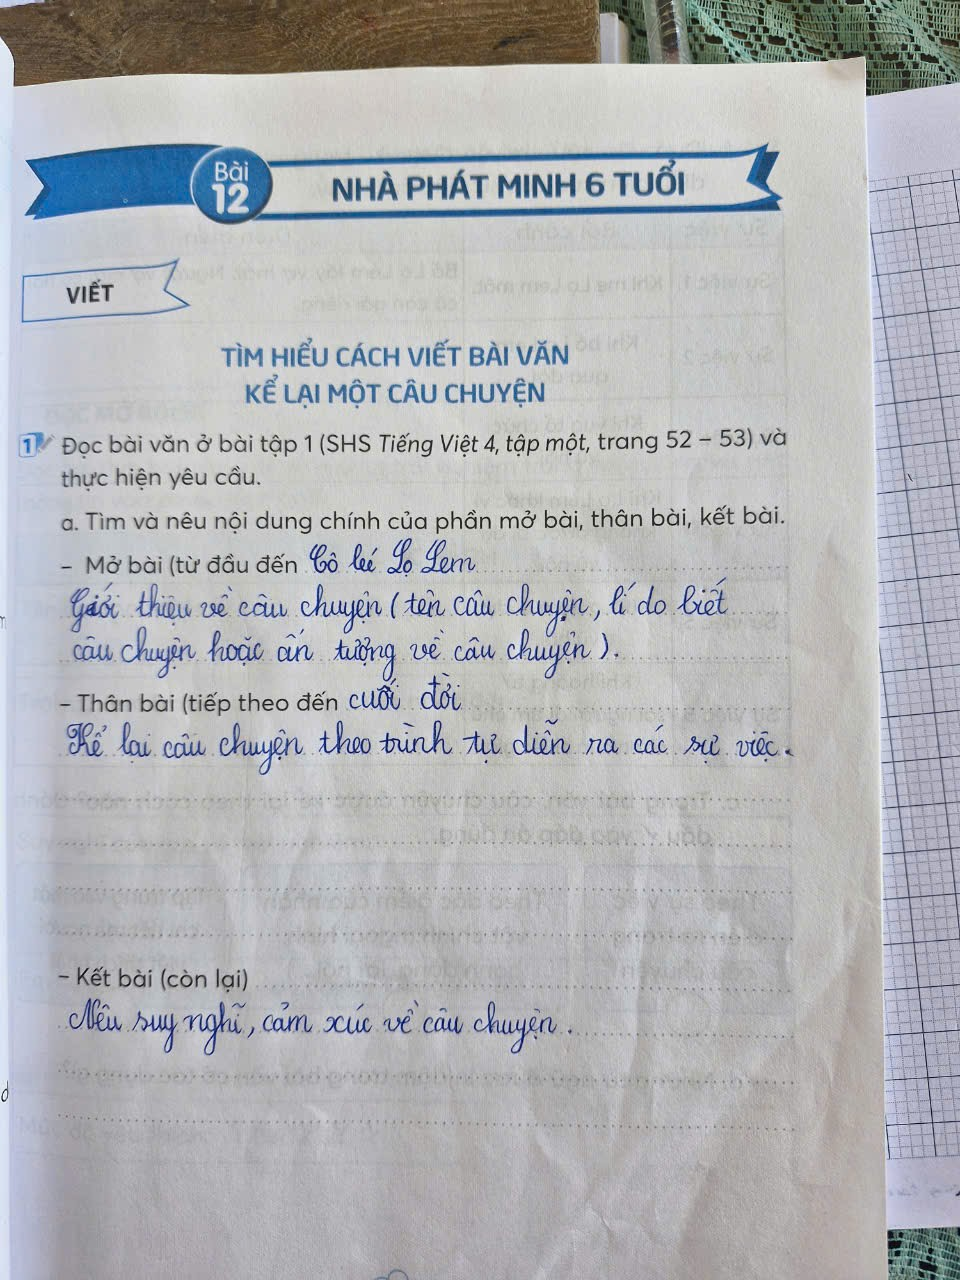 Bài
12
NHÀ PHÁT MINH 6 TUỔI
VIẾT
TÌM HIỂU CÁCH VIẾT BÀI VĂN
KỂ LẠI MỘT CÂU CHUYỆN
1 Đọc bài văn ở bài tập 1 (SHS Tiếng Việt 4, tập một, trang 52 – 53) và
thực hiện yêu cầu.
a. Tìm và nêu nội dung chính của phần mở bài, thân bài, kết bài.
– Mở bài (từ đầu đến Cô bé Lọ Lem
Giới thiệu về câu chuyện (tên câu chuyện, lí do biết
câu chuyện hoặc ấn tượng về câu chuyện).
– Thân bài (tiếp theo đến cuối đời
Kể lại câu chuyện theo trình tự diễn ra các sự việc.
– Kết bài (còn lại)
Nêu suy nghĩ, cảm xúc về câu chuyện.